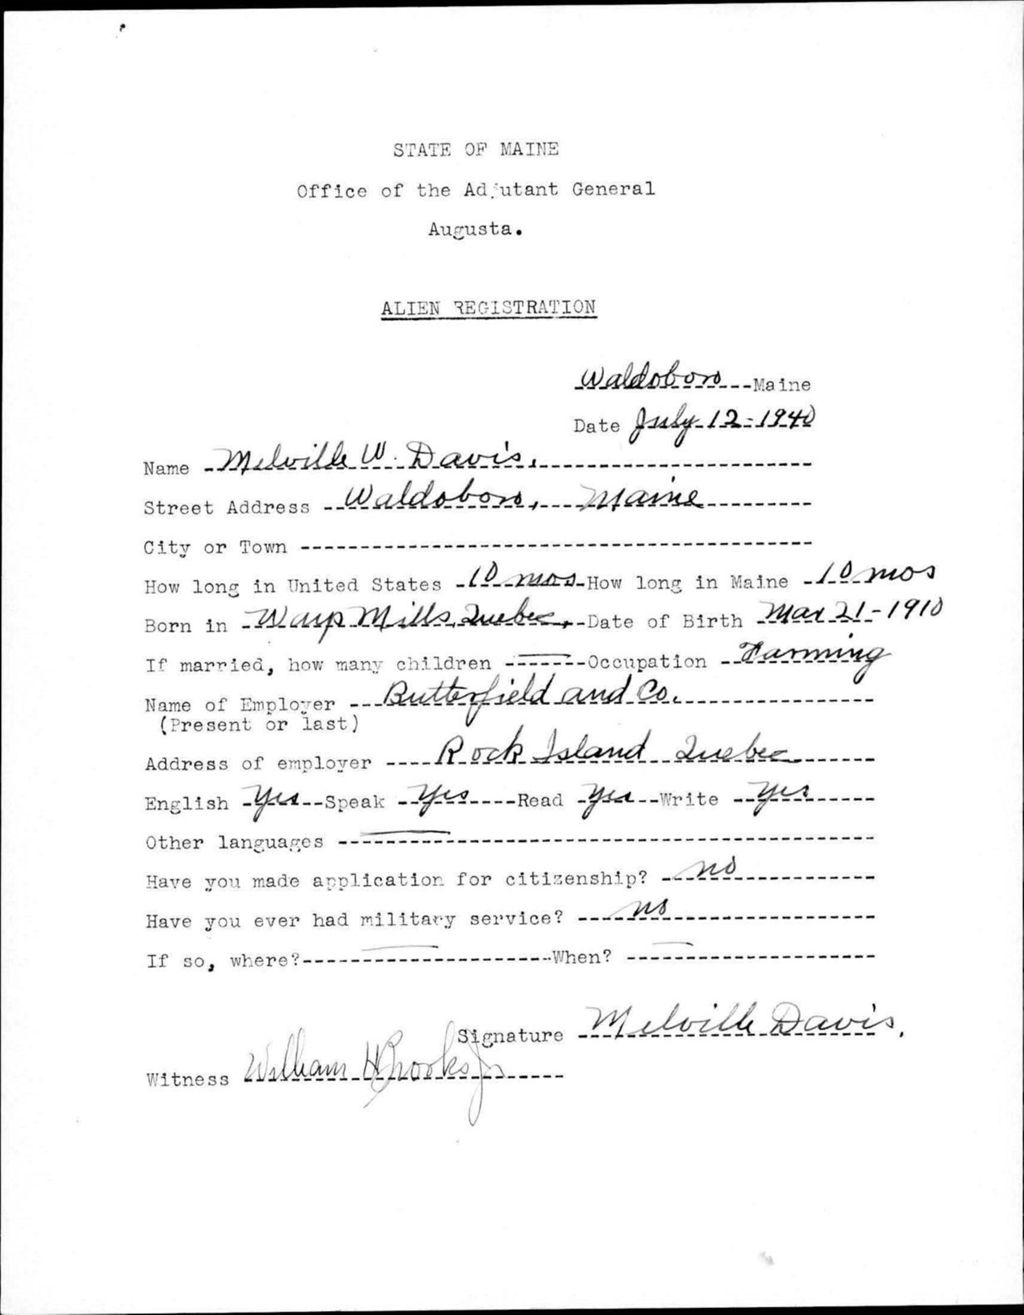 STATE OF MAINE
Office of the Adjutant General
Augusta.
ALIEN REGISTRATION
Waldoboro Maine
Date July 12-1940
Name Melville W. Davis.
Street Address Waldoboro, Maine
City or Town
How long in United States 10 mos How long in Maine 10 mos
Born in Mills, Quebec. Date of Birth Mar 21-1910
If married, how many children Occupation Farming
Name of Employer Butterfield and Co.
(Present or last)
Address of employer Rock Island Quebec
English Yes Speak Yes Read Yes Write Yes
Other languages
Have you made application for citizenship? no
Have you ever had military service? no
If so, where? When?
Signature Melville Davis.
Witness William H Brooks Jr